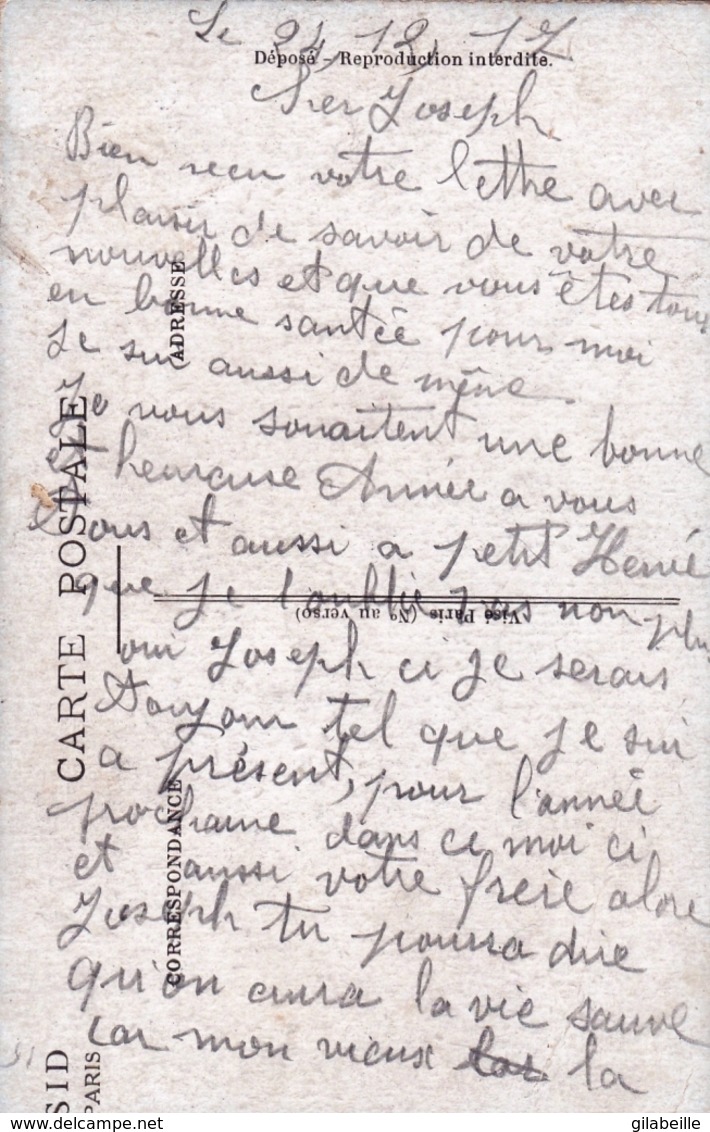 Le 24, 12, 17
Déposé - Reproduction interdite.
Cher Joseph
Bien recu votre lettre avec
plaisir de savoir de votre
nouvelles et que vous êtes tous
en bonne santée pour moi
je sui aussi de même
Je vous souaitent une bonne
et heureuse Année a vous
tous et aussi a petit Hervé
que je l'oublie pas non plu
oui Joseph ci je serais
toujour tel que je sui
a présent, pour l'année
prochaine dans ce moi ci
et aussi votre frère alore
Joseph tu poura dire
qu'on aura la vie sauve
car mon vieux la
ADRESSE
CARTE POSTALE
Visé Paris (No au verso)
CORRESPONDANCE
SID
PARIS
gilabeille